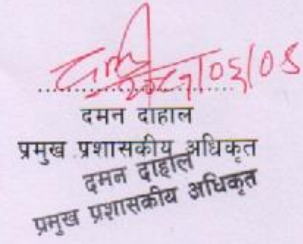 दमन दाहाल
प्रमुख प्रशासकीय अधिकृत
दमन दाहाल
प्रमुख प्रशासकीय अधिकृत